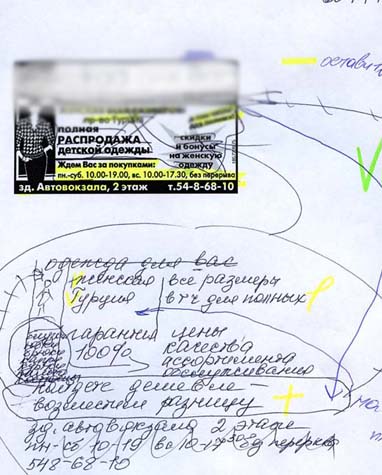 оставит
пр-во Турция
полная
РАСПРОДАЖА
детской одежды
скидки
и бонусы
на женскую
одежду
Ждем Вас за покупками:
пн.-суб. 10.00-19.00, вс. 10.00-17.30, без перерыва
зд. Автовокзала, 2 этаж т.54-8-68-10
одежда для вас
женская все размеры
Турция в т.ч. для полных
гарантия цены
100% качества
ассортимента
обслуживания
найдете дешевле –
возместим разницу
зд. автовокзала 2 этаж
пн-сб 10-19 вс 10-17 30 без перерыва
548-68-10